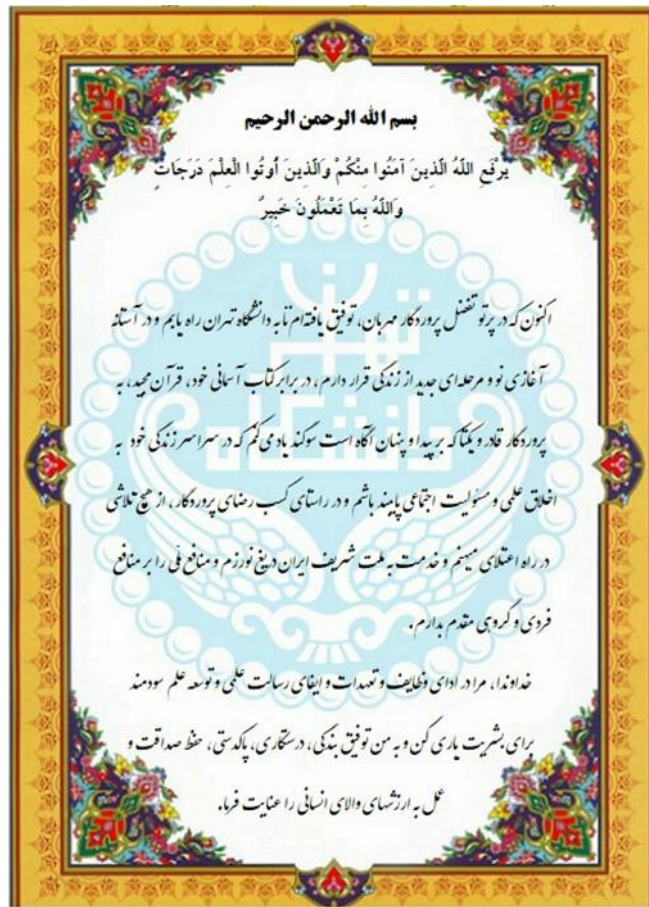 بسم الله الرحمن الرحیم
یرْفَعِ اللَّهُ الَّذِینَ آمَنُوا مِنْکُمْ وَالَّذِینَ أُوتُوا الْعِلْمَ دَرَجَاتٍ
وَاللَّهُ بِمَا تَعْمَلُونَ خَبِیرٌ
اکنون که در پرتو تفضل پروردگار مهربان، توفیق یافته‌ام تا به دانشگاه تهران راه یابم و در آستانه
آغازی نو و مرحله‌ای جدید از زندگی قرار دارم، در برابر کتاب آسمانی خود، قرآن مجید، به
پروردگار قادر و یکتا که بر پیدا و پنهان آگاه است سوگند یاد می‌کنم که در سراسر زندگی خود به
اخلاق علمی و مسئولیت اجتماعی پایبند باشم و در راستای کسب رضای پروردگار، از هیچ تلاشی
در راه اعتلای میهنم و خدمت به ملت شریف ایران دریغ نورزم و منافع ملّی را بر منافع
فردی و گروهی مقدم بدارم.
خداوندا، مرا در ادای وظایف و تعهدات و ایفای رسالت علمی و توسعه علم سودمند
برای بشریت یاری کن و به من توفیق بندگی، درستکاری، پاکدستی، حفظ صداقت و
عمل به ارزشهای والای انسانی را عنایت فرما.
دانشگاه